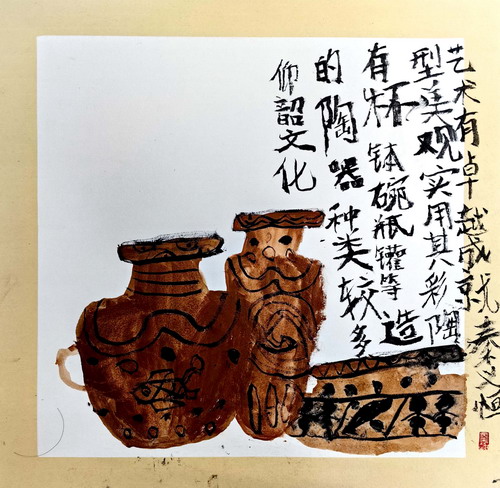 仰韶文化
的陶器种类较多
有杯钵碗瓶罐等造
型美观实用其彩陶
艺术有卓越成就
秦 恒